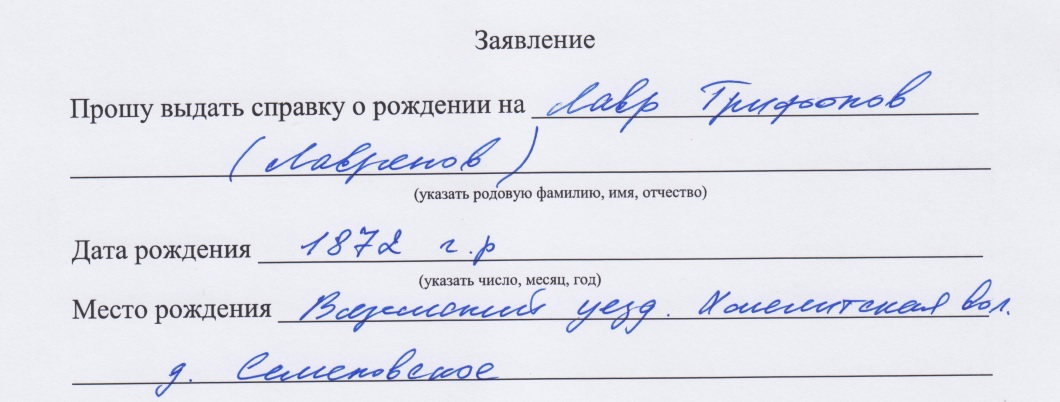 Заявление
Прошу выдать справку о рождении на Лавр Трифонов
(Лавренов)
(указать родовую фамилию, имя, отчество)
Дата рождения 1872 г.р
(указать число, месяц, год)
Место рождения Вяземский уезд. Хмелитская вол.
д. Семеновское